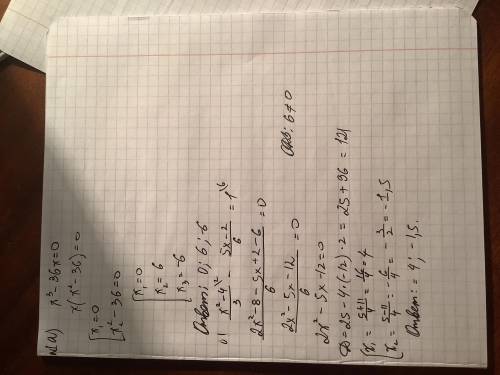 №1 а) x³ - 36x = 0
x(x² - 36) = 0
[x₁ = 0
[x² - 36 = 0
[x₁ = 0
[x₂ = 6
[x₃ = -6
Ответ: 0; 6; -6
б) (x² - 4)^{\2}/3 - (5x - 2)/6 = 1^{\6}
(2x² - 8 - 5x + 2 - 6)/6 = 0
(2x² - 5x - 12)/6 = 0 ОДЗ: 6 ≠ 0
2x² - 5x - 12 = 0
D = 25 - 4·(-12)·2 = 25 + 96 = 121
[x₁ = (5+11)/4 = 16/4 = 4
[x₂ = (5-11)/4 = -6/4 = -3/2 = -1,5
Ответ: 4; -1,5.